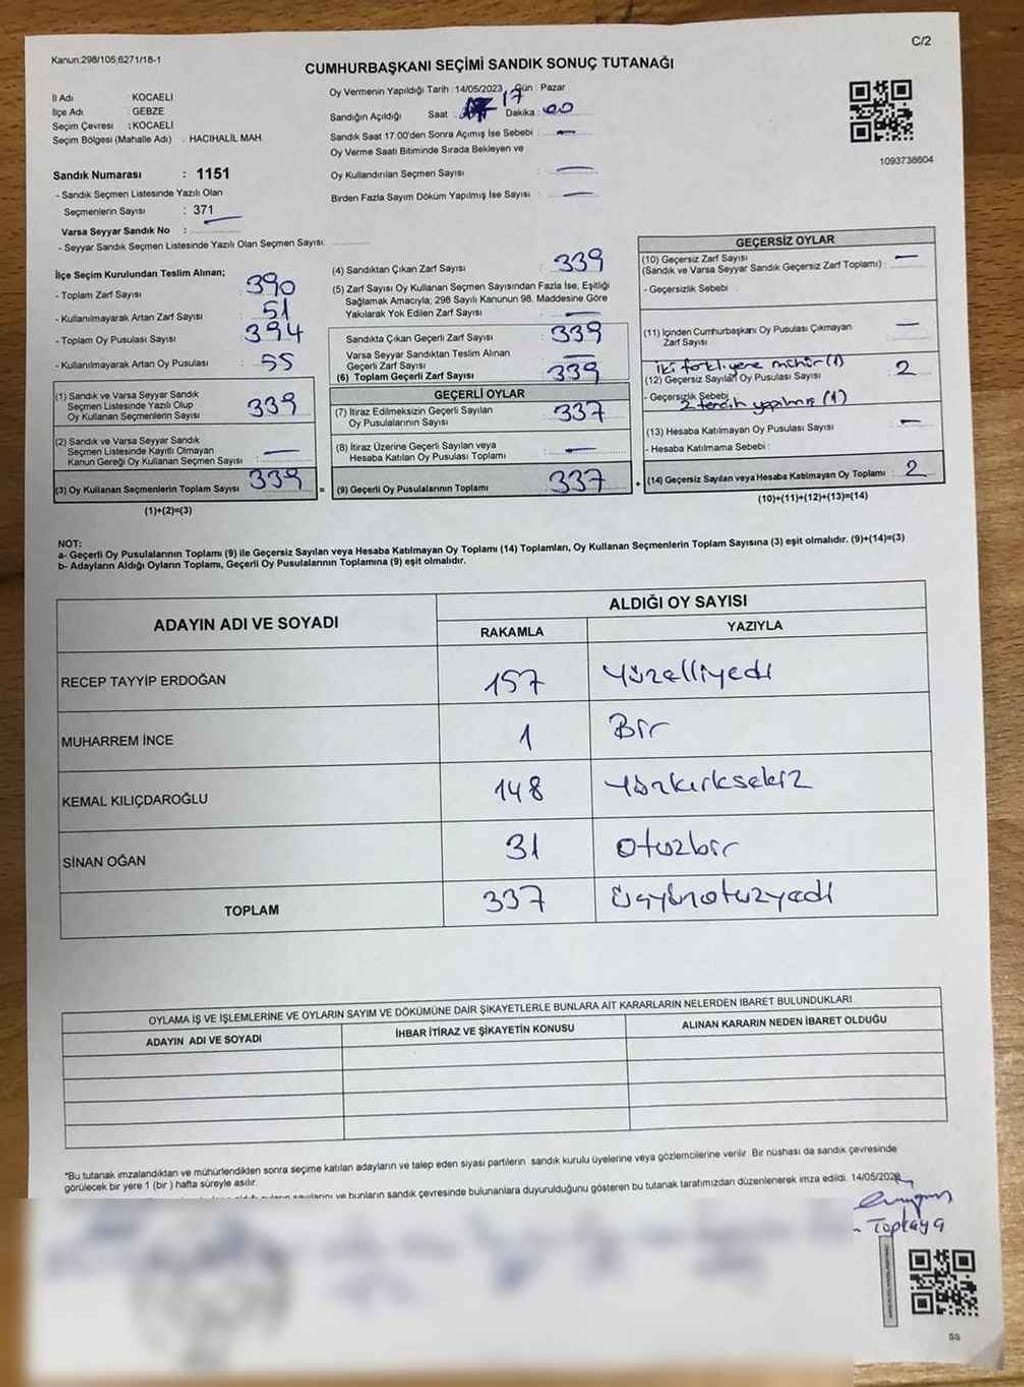 C/2
Kanun:298/105,6271/18-1
CUMHURBAŞKANI SEÇİMİ SANDIK SONUÇ TUTANAĞI
İl Adı KOCAELİ
İlçe Adı GEBZE
Seçim Çevresi : KOCAELİ
Seçim Bölgesi (Mahalle Adı) : HACIHALİL MAH.
Sandık Numarası : 1151
- Sandık Seçmen Listesinde Yazılı Olan
Seçmenlerin Sayısı : 371
Varsa Seyyar Sandık No :
- Seyyar Sandık Seçmen Listesinde Yazılı Olan Seçmen Sayısı:
Oy Vermenin Yapıldığı Tarih : 14/05/2023 Gün : Pazar
Sandığın Açıldığı Saat : 17 Dakika : 00
Sandık Saat 17:00'den Sonra Açımış İse Sebebi : —
Oy Verme Saati Bitiminde Sırada Bekleyen ve
Oy Kullandırılan Seçmen Sayısı : —
Birden Fazla Sayım Döküm Yapılmış İse Sayısı : —
1093738604
İlçe Seçim Kurulundan Teslim Alınan;
- Toplam Zarf Sayısı : 390
- Kullanılmayarak Artan Zarf Sayısı : 51
- Toplam Oy Pusulası Sayısı : 394
- Kullanılmayarak Artan Oy Pusulası : 55
(1) Sandık ve Varsa Seyyar Sandık
Seçmen Listesinde Yazılı Olup
Oy Kullanan Seçmenlerin Sayısı : 339
(2) Sandık ve Varsa Seyyar Sandık
Seçmen Listesinde Kayıtlı Olmayan
Kanun Gereği Oy Kullanan Seçmen Sayısı : —
(3) Oy Kullanan Seçmenlerin Toplam Sayısı : 339
(1)+(2)=(3)
(4) Sandıktan Çıkan Zarf Sayısı : 339
(5) Zarf Sayısı Oy Kullanan Seçmen Sayısından Fazla İse, Eşitliği
Sağlamak Amacıyla; 298 Sayılı Kanunun 98. Maddesine Göre
Yakılarak Yok Edilen Zarf Sayısı : —
Sandıkta Çıkan Geçerli Zarf Sayısı : 339
Varsa Seyyar Sandıktan Teslim Alınan
Geçerli Zarf Sayısı : —
(6) Toplam Geçerli Zarf Sayısı : 339
GEÇERLİ OYLAR
(7) İtiraz Edilmeksizin Geçerli Sayılan
Oy Pusulalarının Sayısı : 337
(8) İtiraz Üzerine Geçerli Sayılan veya
Hesaba Katılan Oy Pusulası Toplamı : —
= (9) Geçerli Oy Pusulalarının Toplamı : 337
GEÇERSİZ OYLAR
(10) Geçersiz Zarf Sayısı
(Sandık ve Varsa Seyyar Sandık Geçersiz Zarf Toplamı) : —
- Geçersizlik Sebebi :
(11) İçinden Cumhurbaşkanı Oy Pusulası Çıkmayan
Zarf Sayısı : —
iki farklı yere mühür (1)
(12) Geçersiz Sayılan Oy Pusulası Sayısı : 2
- Geçersizlik Sebebi
2 tercih yapılmış (1)
(13) Hesaba Katılmayan Oy Pusulası Sayısı : —
- Hesaba Katılmama Sebebi :
+ (14) Geçersiz Sayılan veya Hesaba Katılmayan Oy Toplamı : 2
(10)+(11)+(12)+(13)=(14)
NOT:
a- Geçerli Oy Pusulalarının Toplamı (9) ile Geçersiz Sayılan veya Hesaba Katılmayan Oy Toplamı (14) Toplamları, Oy Kullanan Seçmenlerin Toplam Sayısına (3) eşit olmalıdır. (9)+(14)=(3)
b- Adayların Aldığı Oyların Toplamı, Geçerli Oy Pusulalarının Toplamına (9) eşit olmalıdır.
ADAYIN ADI VE SOYADI ALDIĞI OY SAYISI
RAKAMLA YAZIYLA
RECEP TAYYİP ERDOĞAN 157 Yüzelliyedi
MUHARREM İNCE 1 Bir
KEMAL KILIÇDAROĞLU 148 Yüzkırksekiz
SİNAN OĞAN 31 Otuzbir
TOPLAM 337 Üçyüzotuzyedi
OYLAMA İŞ VE İŞLEMLERİNE VE OYLARIN SAYIM VE DÖKÜMÜNE DAİR ŞİKAYETLERLE BUNLARA AİT KARARLARIN NELERDEN İBARET BULUNDUKLARI
ADAYIN ADI VE SOYADI İHBAR İTİRAZ VE ŞİKAYETİN KONUSU ALINAN KARARIN NEDEN İBARET OLDUĞU
*Bu tutanak imzalandıktan ve mühürlendikten sonra seçime katılan adayların ve talep eden siyasi partilerin sandık kurulu üyelerine veya gözlemcilerine verilir. Bir nüshası da sandık çevresinde
görülecek bir yere 1 (bir ) hafta süreyle asılır.
ve bunların sandık çevresinde bulunanlara duyurulduğunu gösteren bu tutanak tarafımızdan düzenlenerek imza edildi. 14/05/202
Topkaya